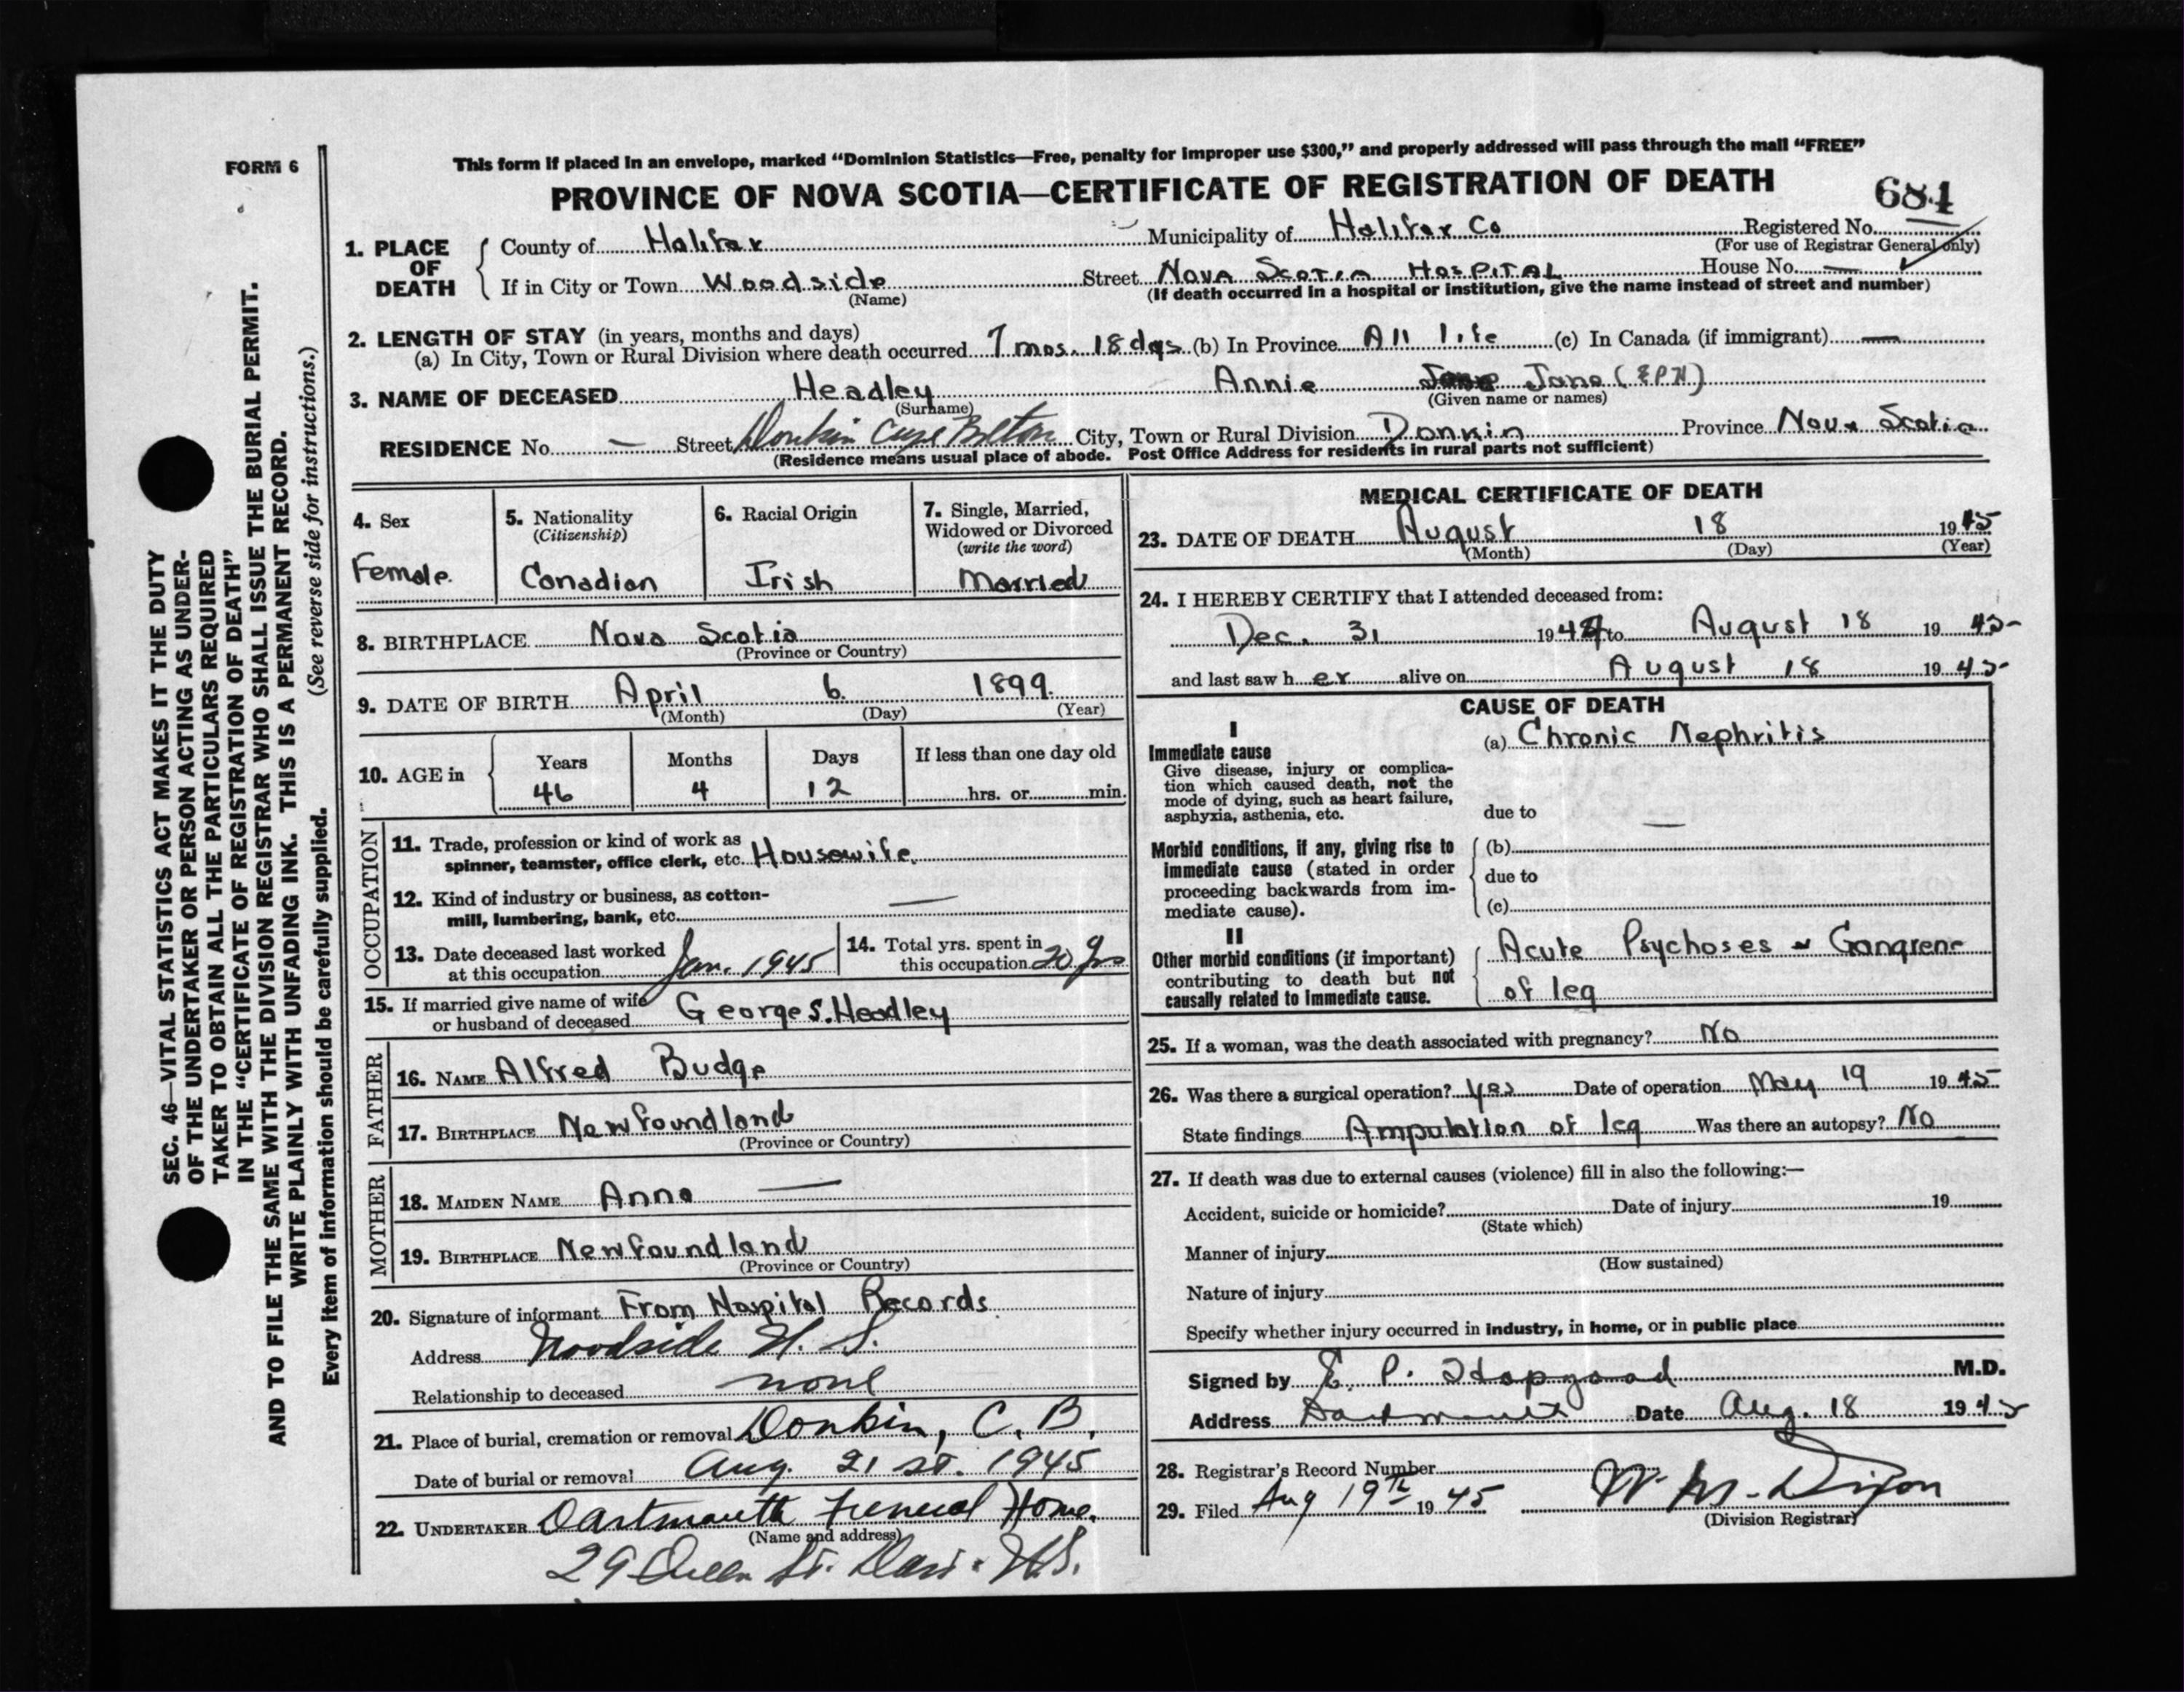 FORM 6
SEC. 46—VITAL STATISTICS ACT MAKES IT THE DUTY
OF THE UNDERTAKER OR PERSON ACTING AS UNDER-
TAKER TO OBTAIN ALL THE PARTICULARS REQUIRED
IN THE "CERTIFICATE OF REGISTRATION OF DEATH"
AND TO FILE THE SAME WITH THE DIVISION REGISTRAR WHO SHALL ISSUE THE BURIAL PERMIT.
WRITE PLAINLY WITH UNFADING INK. THIS IS A PERMANENT RECORD.
Every item of information should be carefully supplied. (See reverse side for instructions.)
This form if placed in an envelope, marked "Dominion Statistics—Free, penalty for improper use $300," and properly addressed will pass through the mail "FREE"
PROVINCE OF NOVA SCOTIA—CERTIFICATE OF REGISTRATION OF DEATH
684
1. PLACE OF DEATH
County of Halifax Municipality of Halifax Co Registered No.
(For use of Registrar General only)
If in City or Town Woodside Street NOVA SCOTIA HOSPITAL House No. —
(Name) (If death occurred in a hospital or institution, give the name instead of street and number)
2. LENGTH OF STAY (in years, months and days)
(a) In City, Town or Rural Division where death occurred 7 mos. 18 dys (b) In Province All life (c) In Canada (if immigrant) —
3. NAME OF DECEASED Headley Annie Jane (EPH)
(Surname) (Given name or names)
RESIDENCE No. — Street Donkin Cape Breton City, Town or Rural Division Donkin Province Nova Scotia
(Residence means usual place of abode. Post Office Address for residents in rural parts not sufficient)
4. Sex
Female
5. Nationality
(Citizenship)
Canadian
6. Racial Origin
Irish
7. Single, Married,
Widowed or Divorced
(write the word)
Married
8. BIRTHPLACE Nova Scotia
(Province or Country)
9. DATE OF BIRTH April 6 1899
(Month) (Day) (Year)
10. AGE in
Years Months Days If less than one day old
46 4 12 hrs. or min.
OCCUPATION
11. Trade, profession or kind of work as
spinner, teamster, office clerk, etc. Housewife
12. Kind of industry or business, as cotton-
mill, lumbering, bank, etc. —
13. Date deceased last worked
at this occupation Jan. 1945
14. Total yrs. spent in
this occupation 20 yrs
15. If married give name of wife
or husband of deceased George S. Headley
FATHER
16. NAME Alfred Budge
17. BIRTHPLACE Newfoundland
(Province or Country)
MOTHER
18. MAIDEN NAME Anna —
19. BIRTHPLACE Newfoundland
(Province or Country)
20. Signature of informant From Hospital Records
Address Woodside N. S.
Relationship to deceased none
21. Place of burial, cremation or removal Donkin, C. B.
Date of burial or removal Aug. 21 st. 1945
22. UNDERTAKER Dartmouth Funeral Home.
(Name and address)
29 Queen St. Dart. N.S.
MEDICAL CERTIFICATE OF DEATH
23. DATE OF DEATH August 18 1945
(Month) (Day) (Year)
24. I HEREBY CERTIFY that I attended deceased from:
Dec. 31 1944 to August 18 1945
and last saw her alive on August 18 1945
CAUSE OF DEATH
I
Immediate cause
Give disease, injury or complica-
tion which caused death, not the
mode of dying, such as heart failure,
asphyxia, asthenia, etc.
(a) Chronic Nephritis
due to —
Morbid conditions, if any, giving rise to
immediate cause (stated in order
proceeding backwards from im-
mediate cause).
(b)
due to
(c)
II
Other morbid conditions (if important)
contributing to death but not
causally related to immediate cause.
Acute Psychoses - Gangrene
of leg
25. If a woman, was the death associated with pregnancy? No
26. Was there a surgical operation? Yes Date of operation May 19 1945
State findings Amputation of leg Was there an autopsy? No
27. If death was due to external causes (violence) fill in also the following:—
Accident, suicide or homicide? Date of injury 19
(State which)
Manner of injury
(How sustained)
Nature of injury
Specify whether injury occurred in industry, in home, or in public place
Signed by E. P. Hapgood M.D.
Address Dartmouth Date Aug. 18 1945
28. Registrar's Record Number
29. Filed Aug 19th 1945 W. M. Dixon
(Division Registrar)